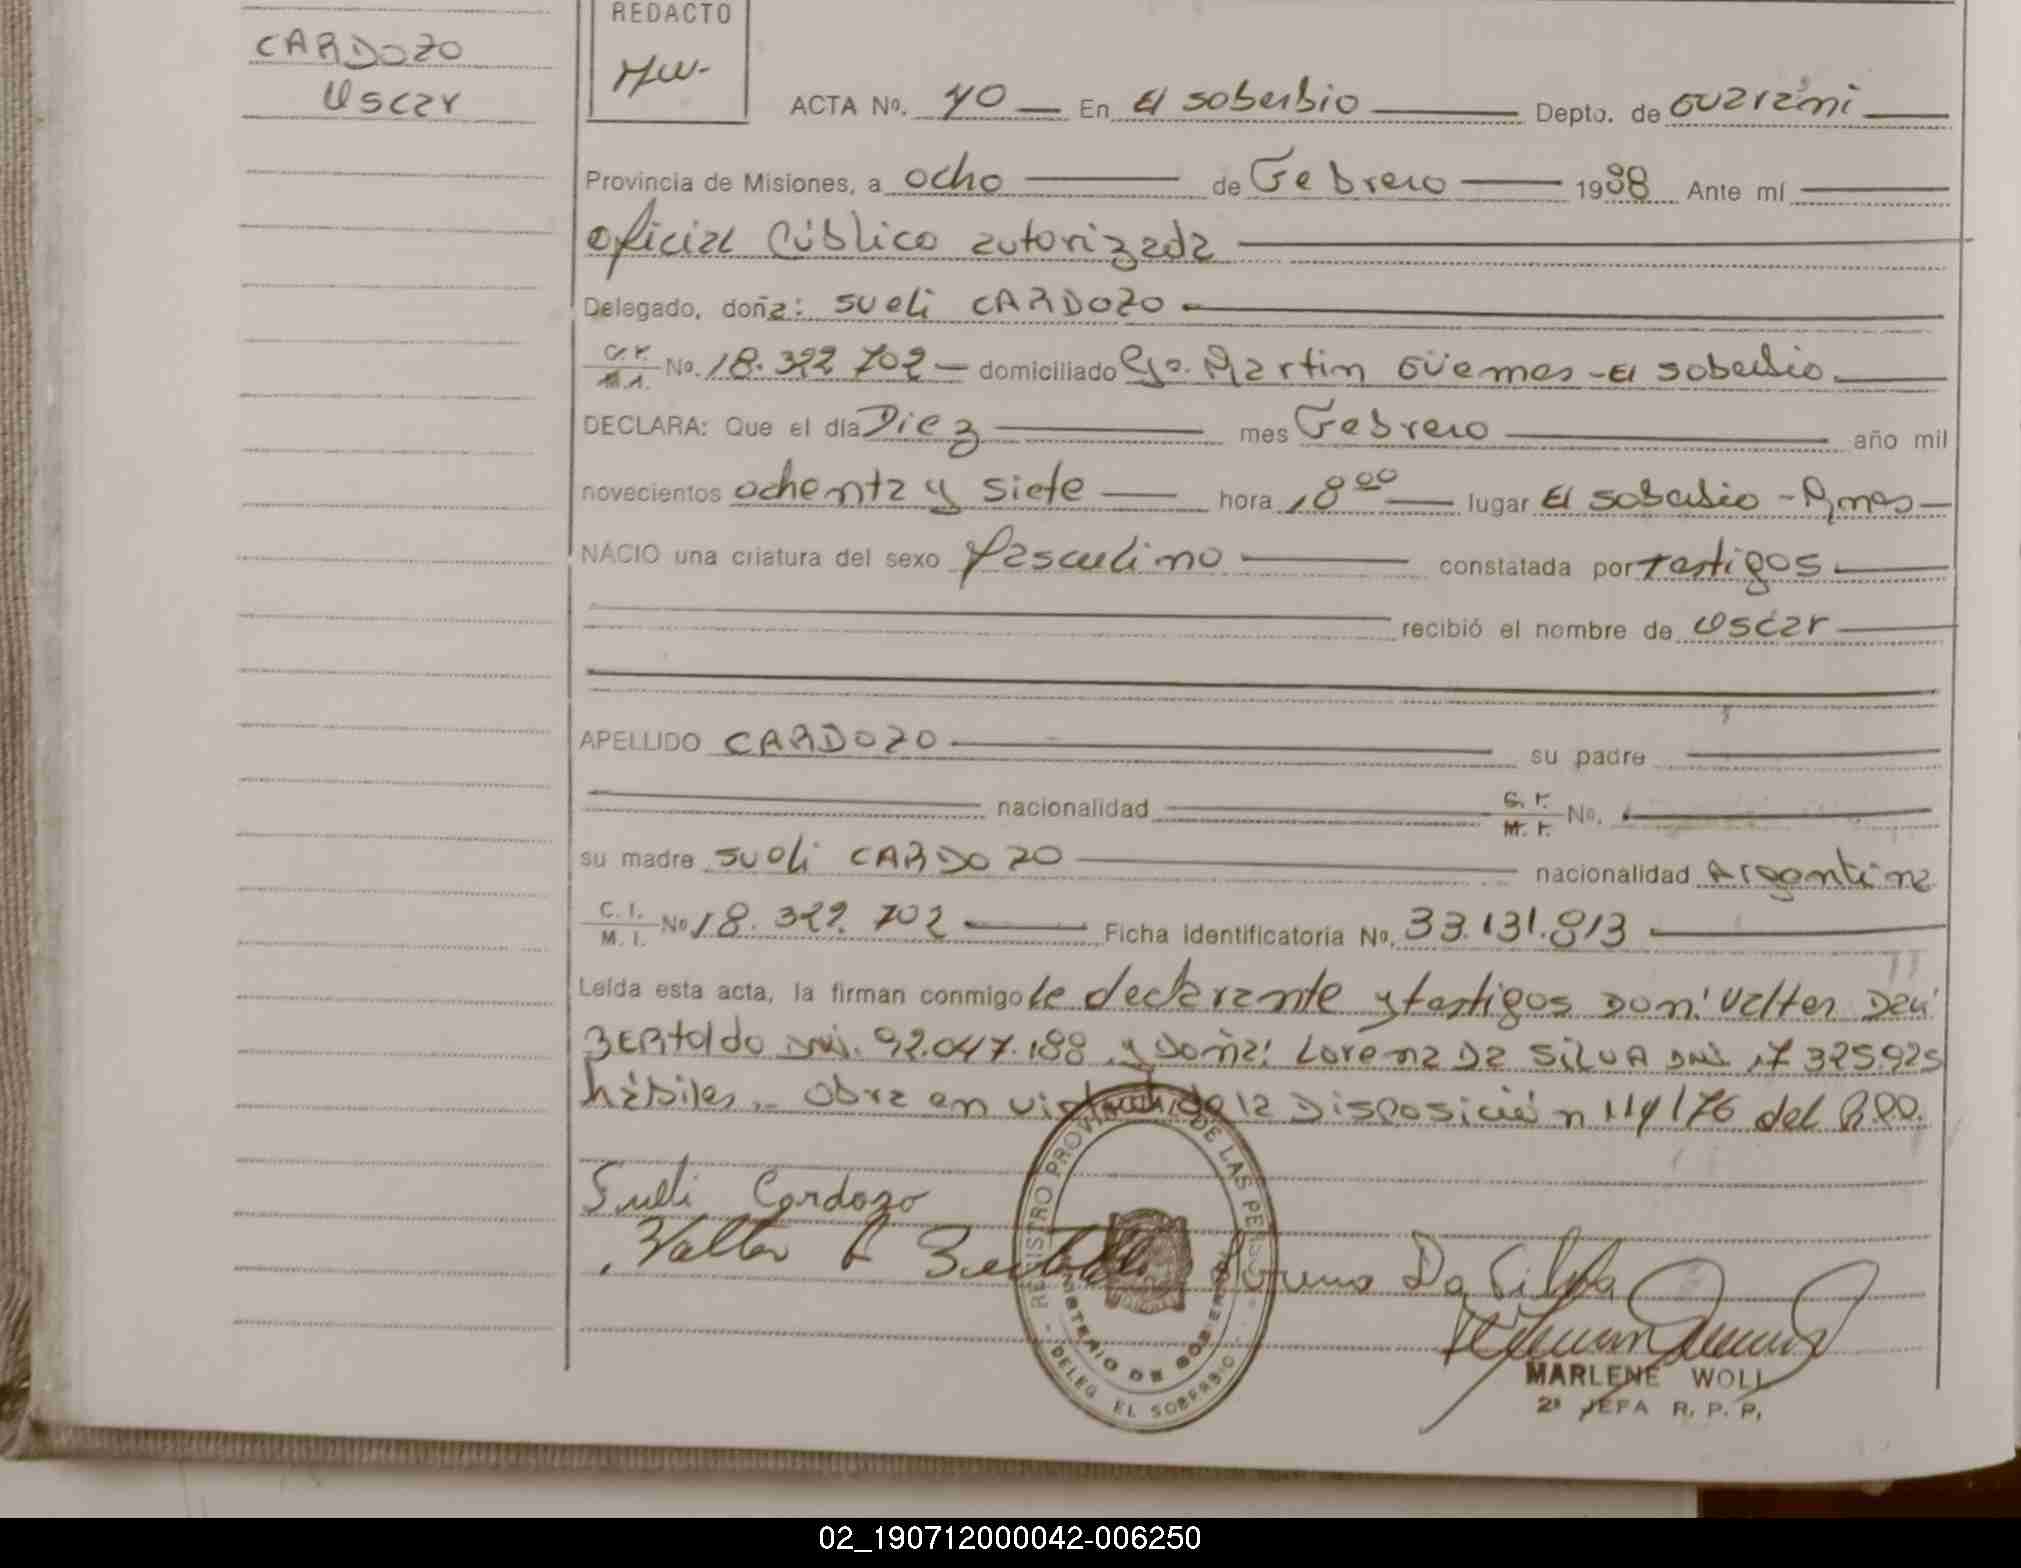 CARDOZO
Oscar
REDACTO
ACTA No. 40 En El Soberbio Depto. de Guaraní
Provincia de Misiones, a ocho de Febrero 1988 Ante mí
oficial Público autorizada
Delegado, doña: Sueli CARDOZO
No. 18.322 702 domiciliado Martin Güemes - El Soberbio
DECLARA: Que el día Diez mes Febrero año mil
novecientos ochenta y siete hora 18 00 lugar El Soberbio
NACIO una criatura del sexo Masculino constatada por testigos
recibió el nombre de Oscar
APELLIDO CARDOZO su padre
nacionalidad C. I. M. I. No.
su madre Sueli CARDOZO nacionalidad Argentina
C. I. M. I. No 18.322.702 Ficha identificatoria No. 33.131.813
Leída esta acta, la firman conmigo la declarante y testigos Don: Valter
BERtoldo DNI. 92.047.188 y Doña: Lorena Da SiLVA DNI 17 325.925
hábiles.- Obra en virtud de la Disposición 114/76 del R.P.P.
Sueli Cardozo
Valter A Bertoldo Lorena Da Silva
REGISTRO PROVINCIAL DE LAS PERSONAS
MINISTERIO DE GOBIERNO
DELEG EL SOBERBIO
MARLENE WOLL
2ª JEFA R. P. P.
02_190712000042-006250